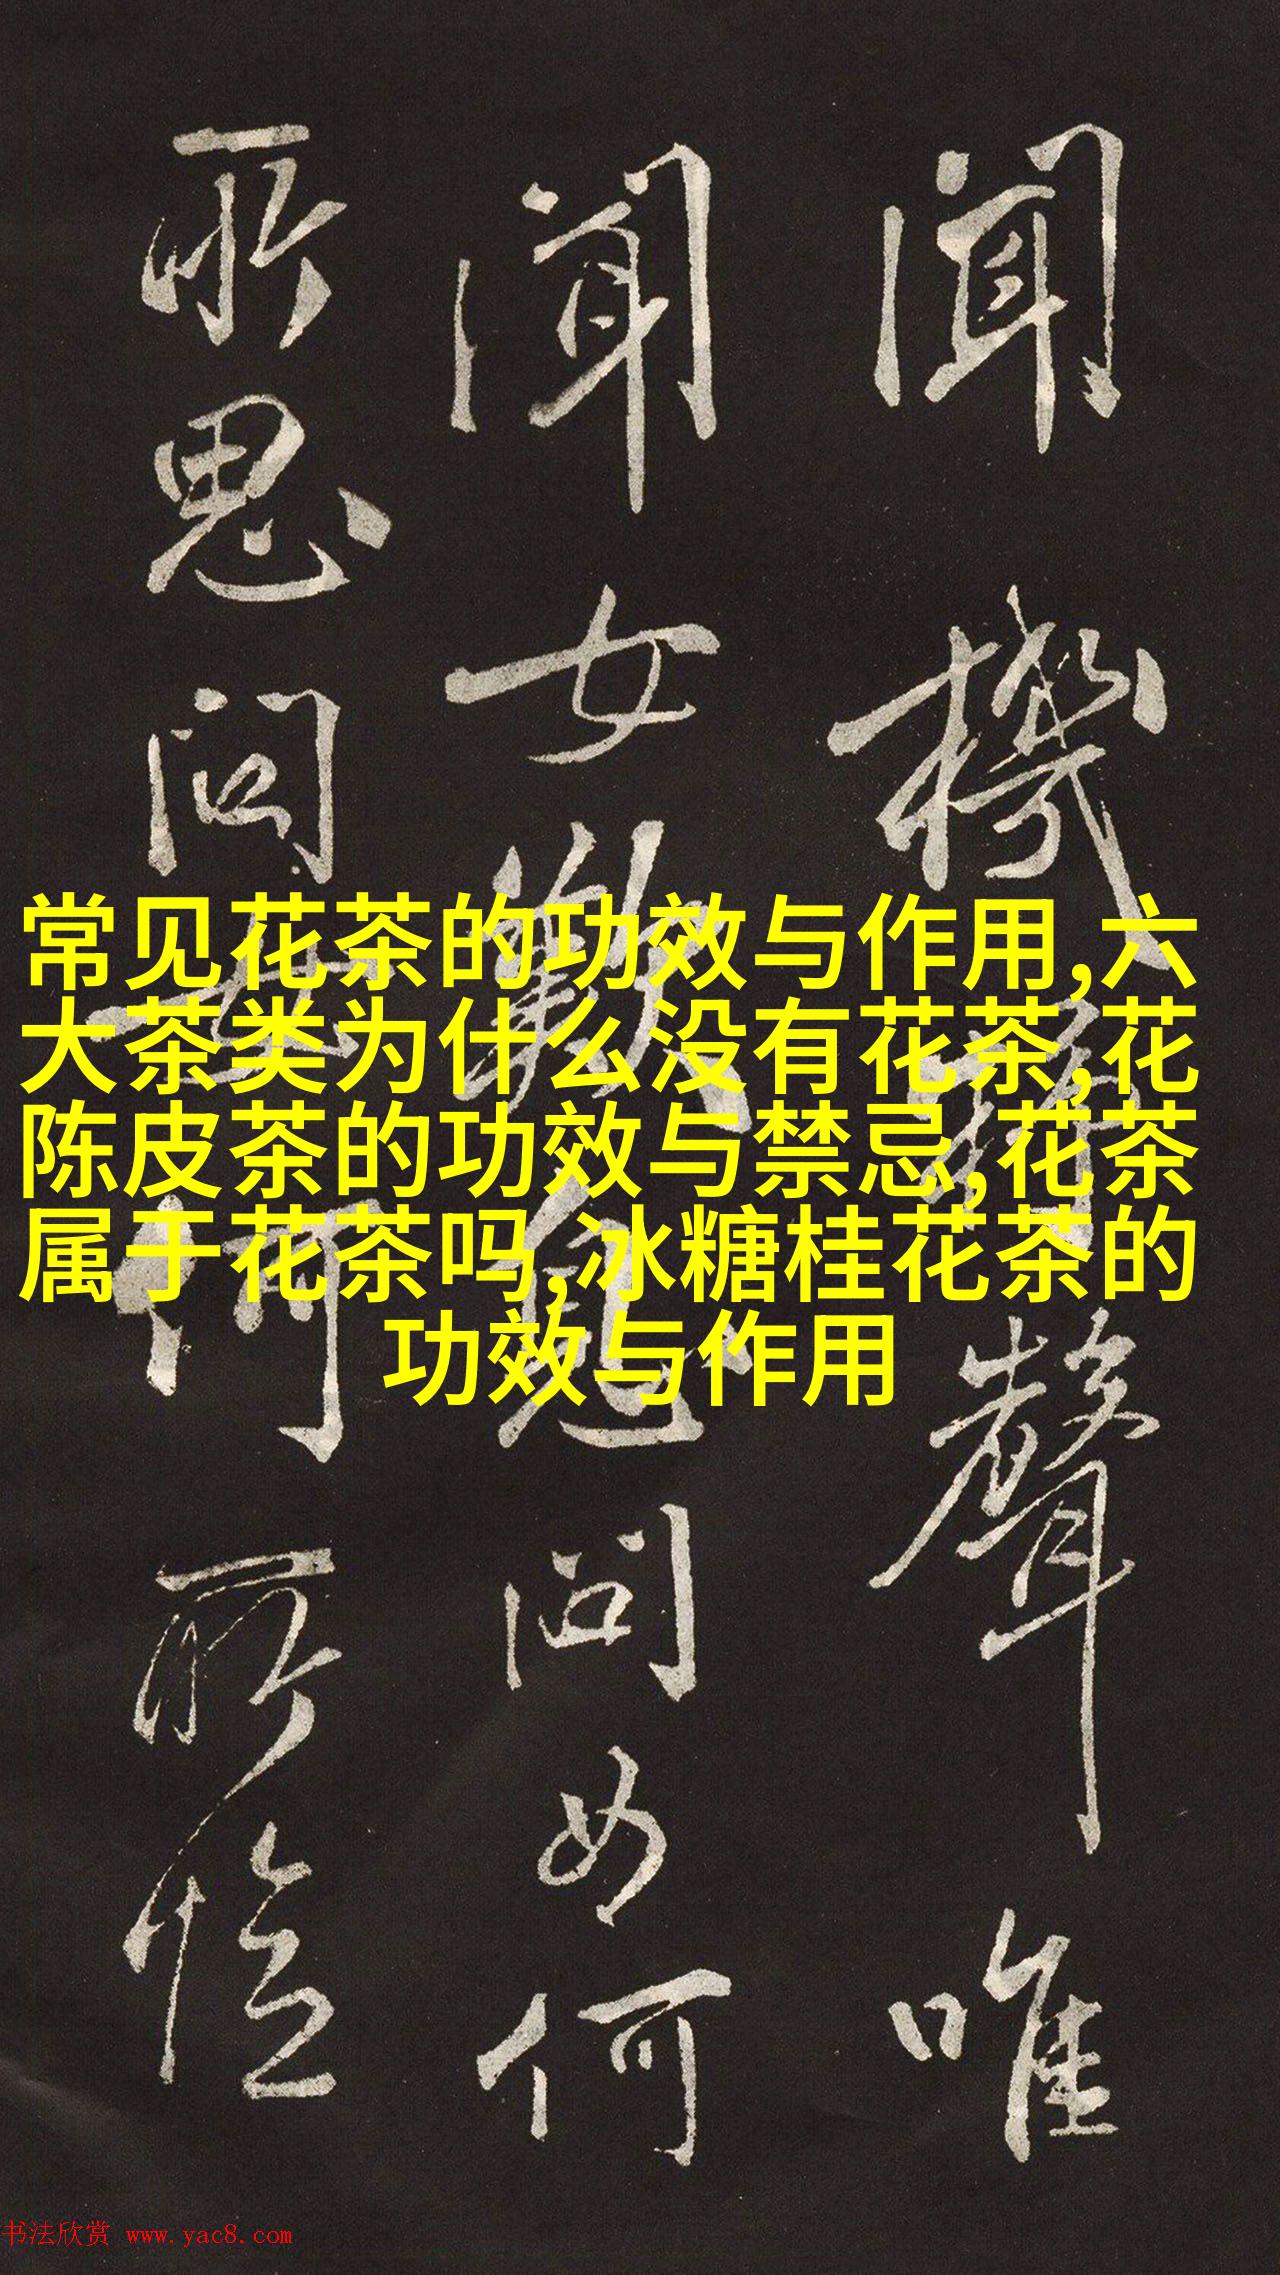 聞機聲唯
聞女歎息問女何
所思問女何所憶
常见花茶的功效与作用,六
大茶类为什么没有花茶,花
陈皮茶的功效与禁忌,花茶
属于花茶吗,冰糖桂花茶的
功效与作用
书法欣赏 www.yac8.com